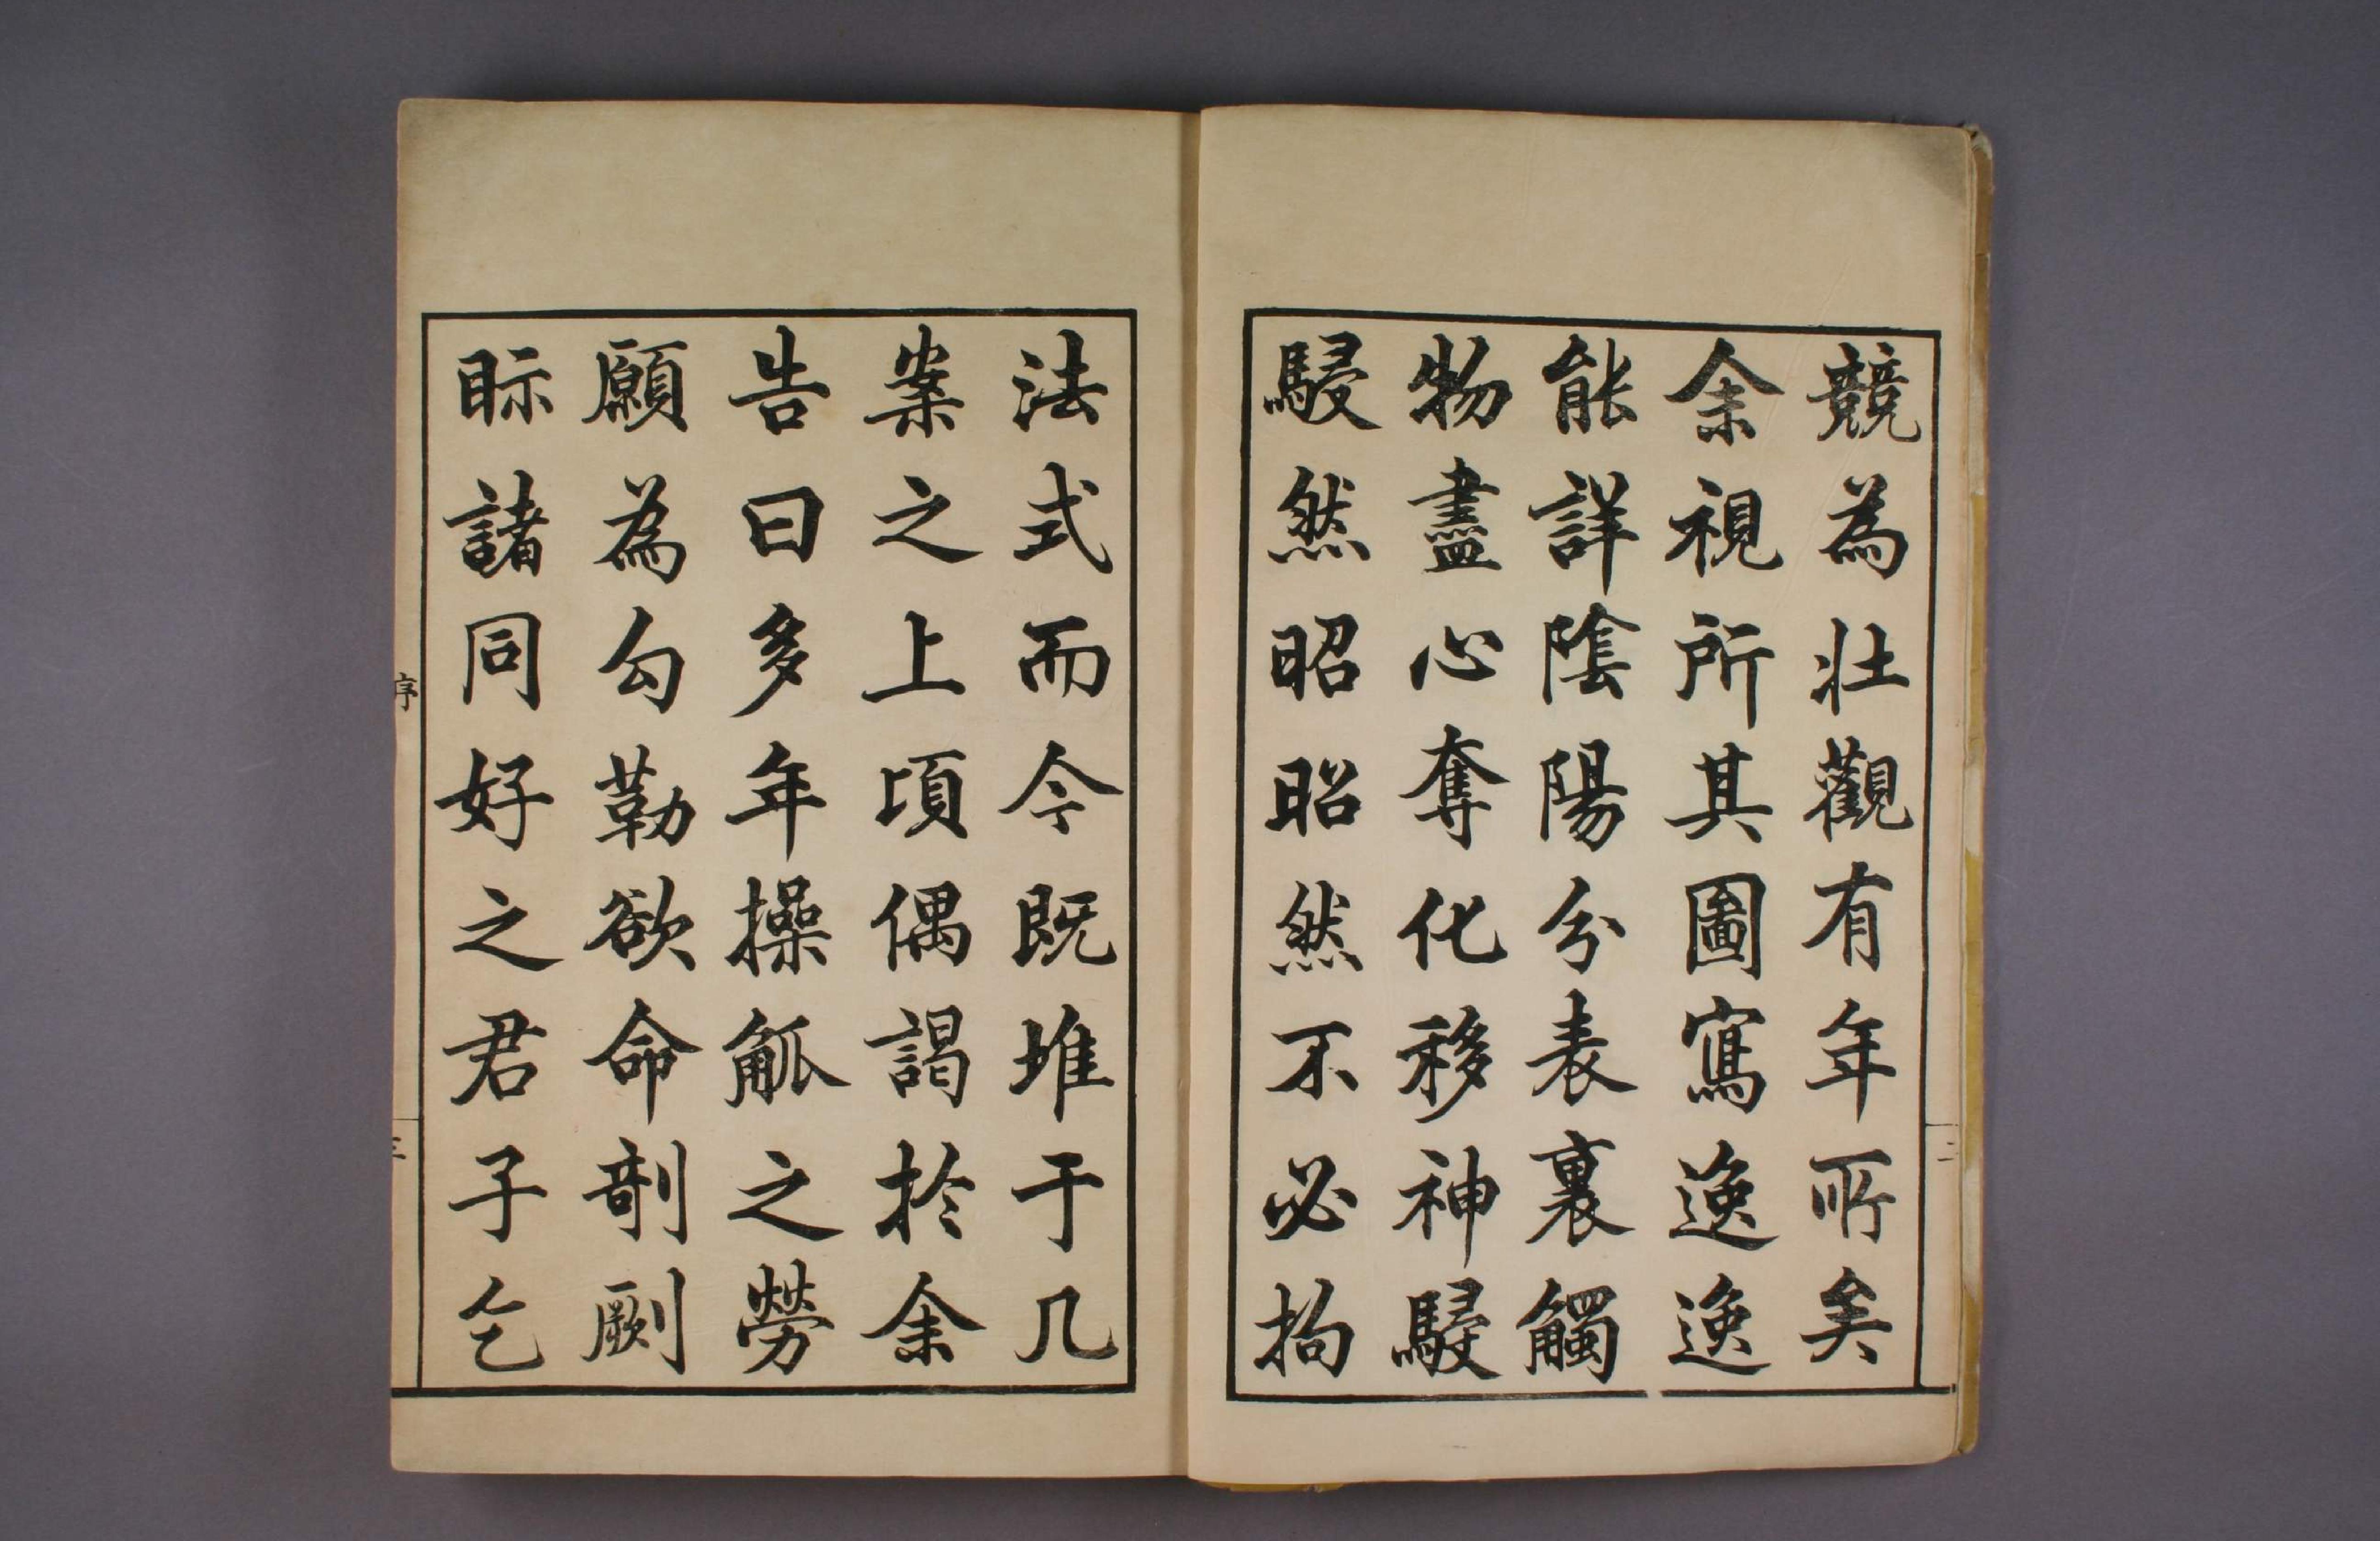 競為壯觀有年所矣
余視所其圖寫逸逸
能詳陰陽分表裏觸
物盡心奪化移神駸
駸然昭昭然不必拘
二
法式而今既堆于几
案之上頃偶謁於余
告曰多年操觚之勞
願為勾勒欲命剞劂
眎諸同好之君子乞
序
三